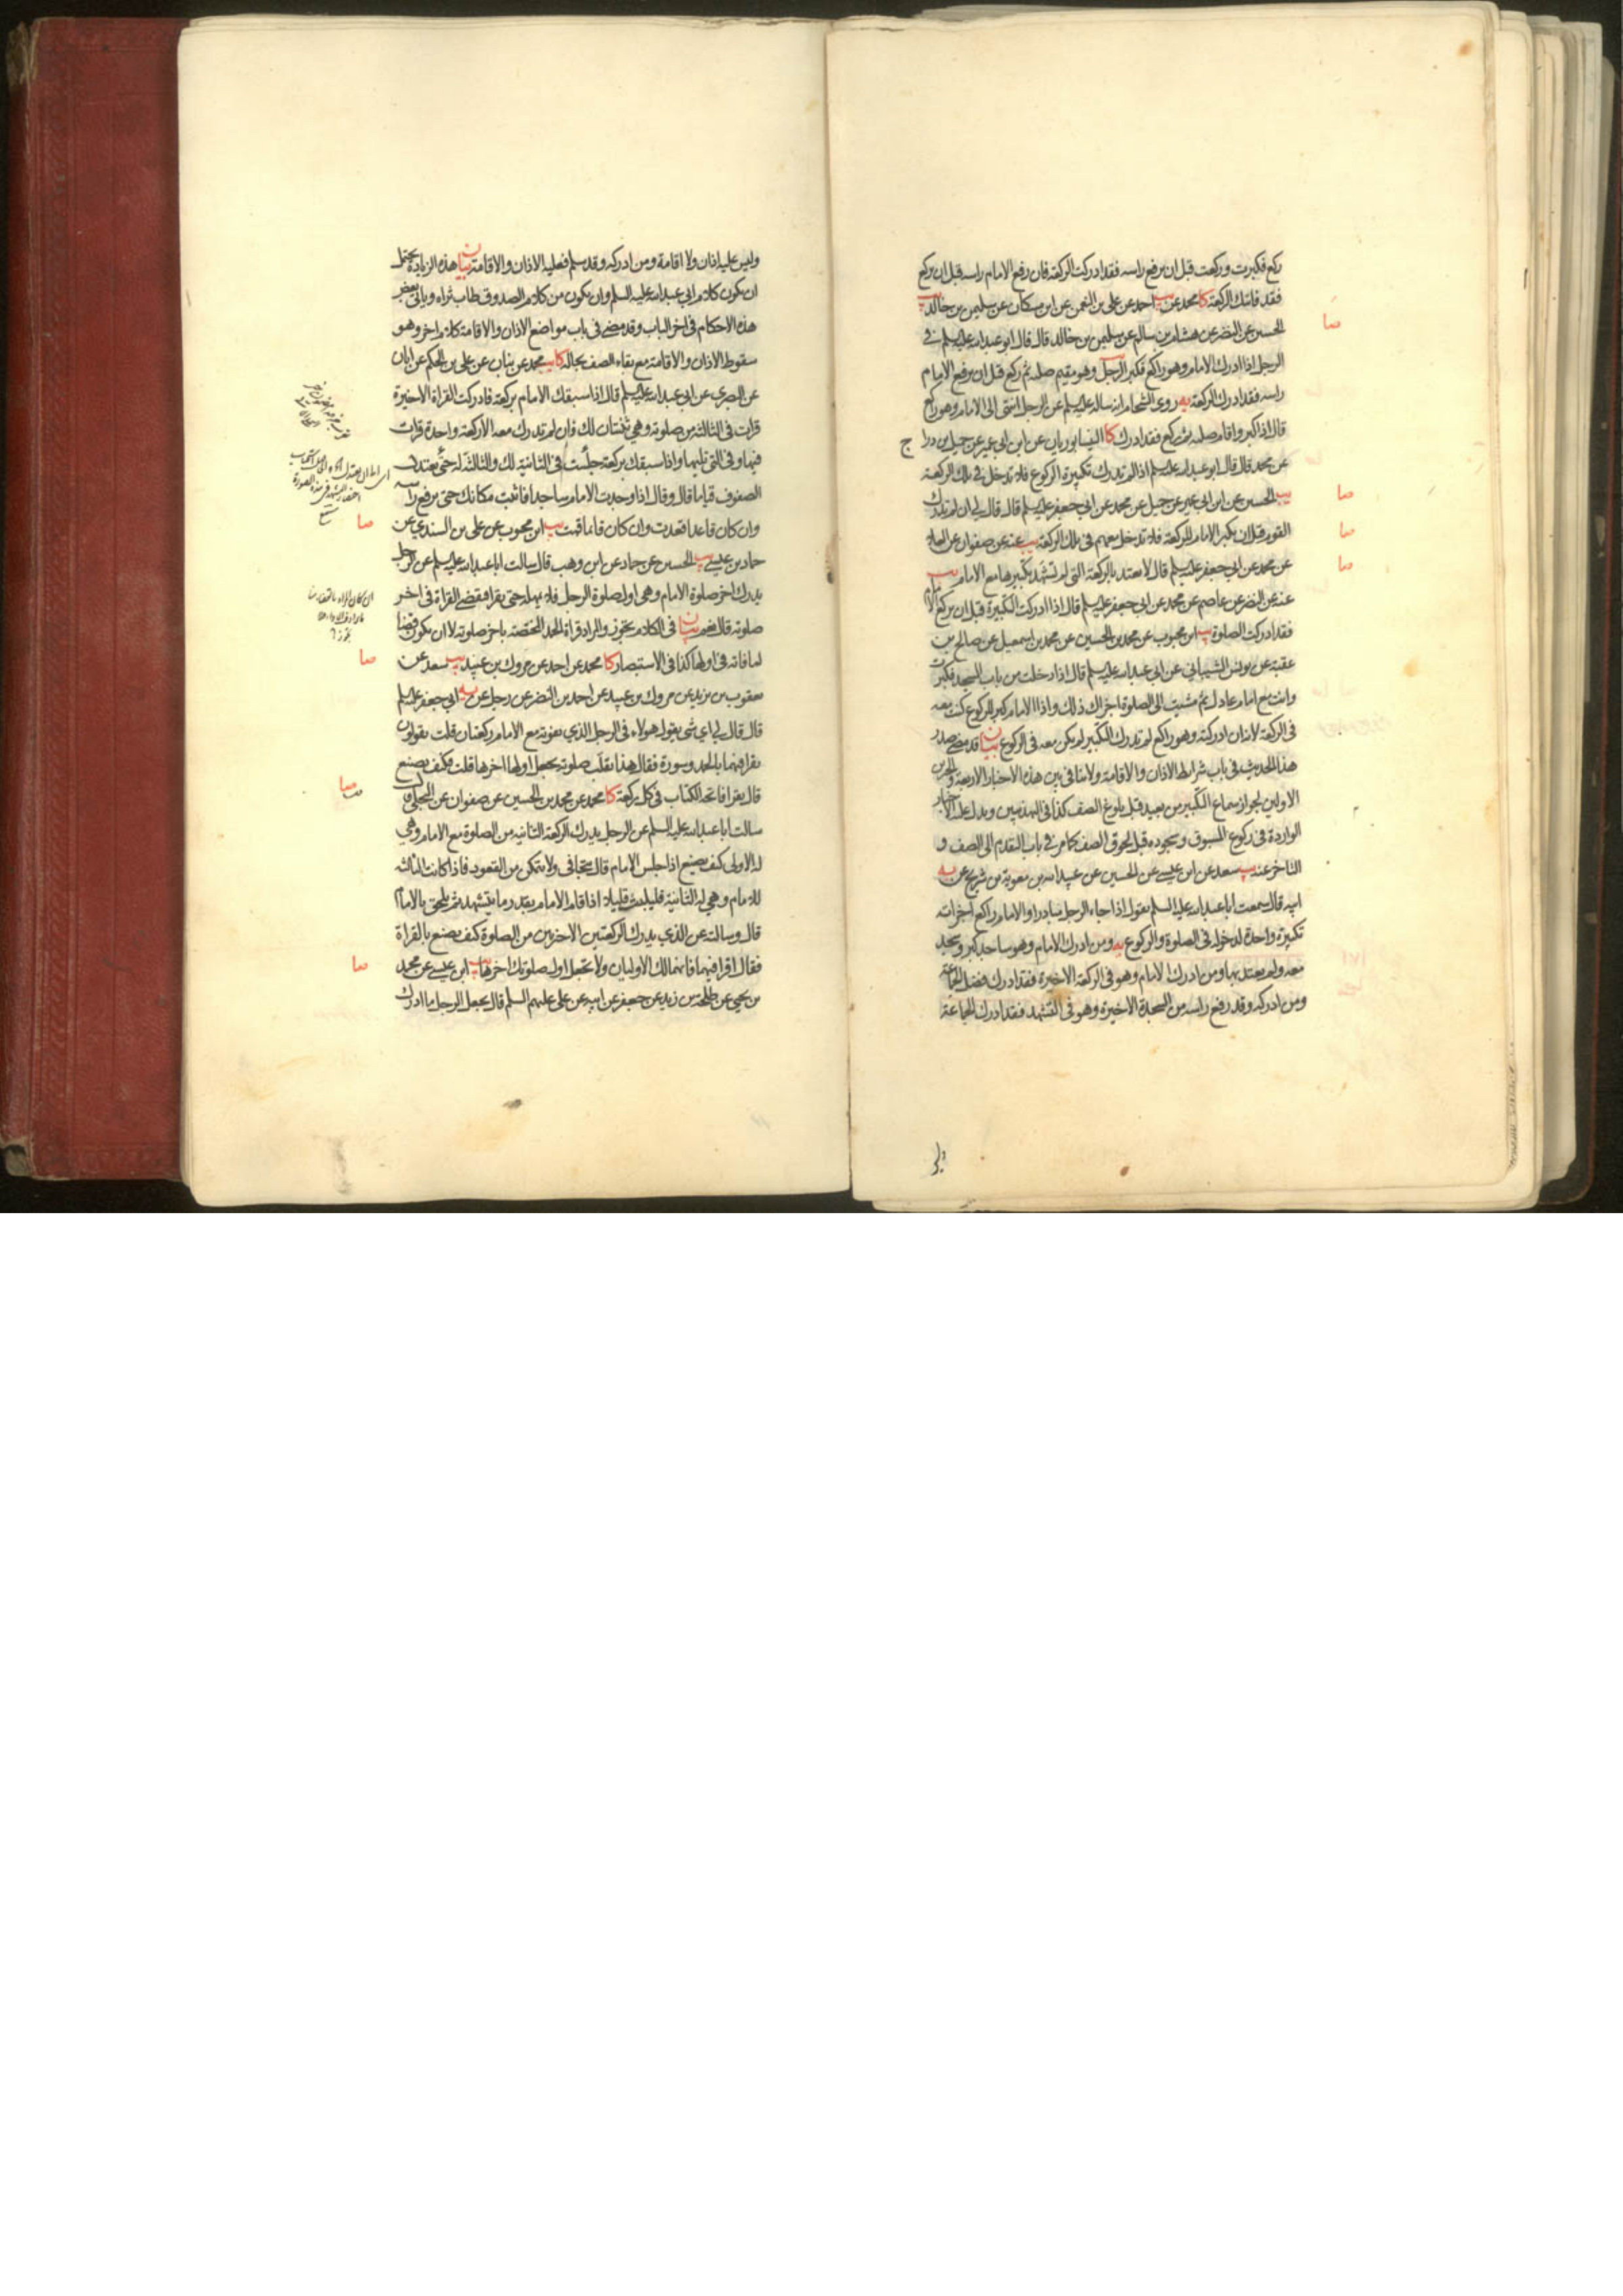 ركع فكبرت وركعت قبل ان يرفع راسه فقد ادركت الركعة فان رفع الامام راسه قبل ان تركع
فقد فاتتك الركعة كا محمد عن يب احمد عن علي بن النعمن عن ابن مسكان عن سليمن بن خالد يب
الحسين عن النضر عن هشام بن سالم عن سليمن بن خالد قال قال ابو عبدالله عليه السلم في
صا
الرجل اذا ادرك الامام وهو راكع فكبر الرجل وهو مقيم صلبه ثم ركع قبل ان يرفع الامام
راسه فقد ادرك الركعة يه روى الشحام انه ساله عليه السلم عن الرجل انتهى الى الامام وهو راكع
قال اذا كبر واقام صلبه ثم ركع فقد ادرك كا النيسابوريان عن ابن ابي عمير عن جميل بن دراج
عن محمد قال قال ابو عبدالله عليه السلم اذا لم تدرك تكبيرة الركوع فلا تدخل في تلك الركعة
يب الحسين عن ابن ابي عمير عن جميل عن محمد عن ابي جعفر عليه السلم قال قال لي ان لم تدرك
صا
القوم قبل ان يكبر الامام للركعة فلا تدخل معهم في تلك الركعة يب عنه عن صفوان عن العلا
صا
عن محمد عن ابي جعفر عليه السلم قال لا يعتد بالركعة التي لم تشهد تكبيرها مع الامام يب
صا
عنه عن النضر عن عاصم عن محمد عن ابي جعفر عليه السلم قال اذا ادركت التكبيرة قبل ان يركع الامام
فقد ادركت الصلوة يب ابن محبوب عن محمد بن الحسين عن محمد بن اسمعيل عن صالح بن
عقبة عن يونس الشيباني عن ابي عبدالله عليه السلم قال اذا دخلت من باب المسجد فكبرت
وانت مع امام عادل ثم مشيت الى الصلوة اجزاك ذلك واذا الامام كبر للركوع كنت معه
في الركعة لانه ان ادركته وهو راكع لم تدرك التكبير لم يكن معه في الركوع بيان قد مضى صدر
هذا الحديث في باب شرائط الاذان والاقامة ولا ينافي بين هذه الاخبار الاربعة والخبرين
الاولين لجواز سماع التكبير من بعيد قبل بلوغ الصف كذا في التهذيبين ويدل عليه الاخبار
الواردة في ركوع المسبوق وسجوده قبل لحوق الصف كما مر في باب التقدم الى الصف و
التاخر عنه يب سعد عن ابن عيسى عن الحسين عن عبيدالله بن معوية بن شريح عن يه
ابيه قال سمعت ابا عبدالله عليه السلم يقول اذا جاء الرجل مبادرا والامام راكع اجزاته
تكبيرة واحدة لدخوله في الصلوة والركوع يه ومن ادرك الامام وهو ساجد كبر وسجد
معه ولم يعتد بها ومن ادرك الامام وهو في الركعة الاخيرة فقد ادرك فضل الجماعة
ومن ادركه وقد رفع راسه من السجدة الاخيرة وهو في التشهد فقد ادرك الجماعة
وليس عليه اذان ولا اقامة ومن ادركه وقد سلم فعليه الاذان والاقامة بيان هذه الزيادة يحتمل
ان يكون كلام ابي عبدالله عليه السلم وان يكون من كلام الصدوق طاب ثراه وياتي بعض
هذه الاحكام في اخر الباب وقد مضى في باب مواضع الاذان والاقامة كلام اخر وهو
سقوط الاذان والاقامة مع بقاء الصف بحاله كا يب محمد عن بنان عن علي بن الحكم عن ابان
عن البصري عن ابي عبدالله عليه السلم قال اذا سبقك الامام بركعة فادركت القراة الاخيرة
قرات في الثالثة من صلوته وهي ثنتان لك فان لم تدرك معه الا ركعة واحدة قرات
فيها وفي التي تليها واذا سبقك بركعة جلست في الثانية لك والثالثة له حتى يعتدل
الصفوف قياما قال وقال اذا وجدت الامام ساجدا فاثبت مكانك حتى يرفع راسه
وان كان قاعدا قعدت وان كان قائما قمت يب ابن محبوب عن علي بن السندي عن
صا
حماد بن عيسى يب الحسين عن حماد عن ابن وهب قال سالت ابا عبدالله عليه السلم عن الرجل
يدرك اخر صلوة الامام وهي اول صلوة الرجل فلا يمهله حتى يقرا فيقضي القراة في اخر
صلوته قال نعم بيان في الكلام تجوز والمراد قراة الحمد المختصة باخر صلوته لا ان يكون قضا
لما فاته في اولها كذا في الاستبصار كا محمد عن احمد عن مروك بن عبيد يب سعد عن
صا
يعقوب بن يزيد عن مروك بن عبيد عن احمد بن النضر عن رجل عن يه ابي جعفر عليه السلم
قال قال لي اي شي يقول هولاء في الرجل الذي تفوته مع الامام ركعتان قلت يقولون
يقرا فيهما بالحمد وسورة فقال هذا يقلب صلوته يجعل اولها اخرها قلت فكيف يصنع
قال يقرا فاتحة الكتاب في كل ركعة كا محمد عن محمد بن الحسين عن صفوان عن البجلي قال
صا
سالت ابا عبدالله عليه السلم عن الرجل يدرك الركعة الثانية من الصلوة مع الامام وهي
له الاولى كيف يصنع اذا جلس الامام قال يتجافى ولا يتمكن من القعود فاذا كانت الثالثة
للامام وهي له الثانية فليلبث قليلا اذا قام الامام بقدر ما يتشهد ثم يلحق بالامام
قال وسالته عن الذي يدرك الركعتين الاخرتين من الصلوة كيف يصنع بالقراة
فقال اقرا فيهما فانهما لك الاوليان ولا تجعل اول صلوتك اخرها يب ابن عيسى عن محمد
صا
بن يحيى عن طلحة بن زيد عن جعفر عن ابيه عن علي عليهم السلم قال يجعل الرجل ما ادرك